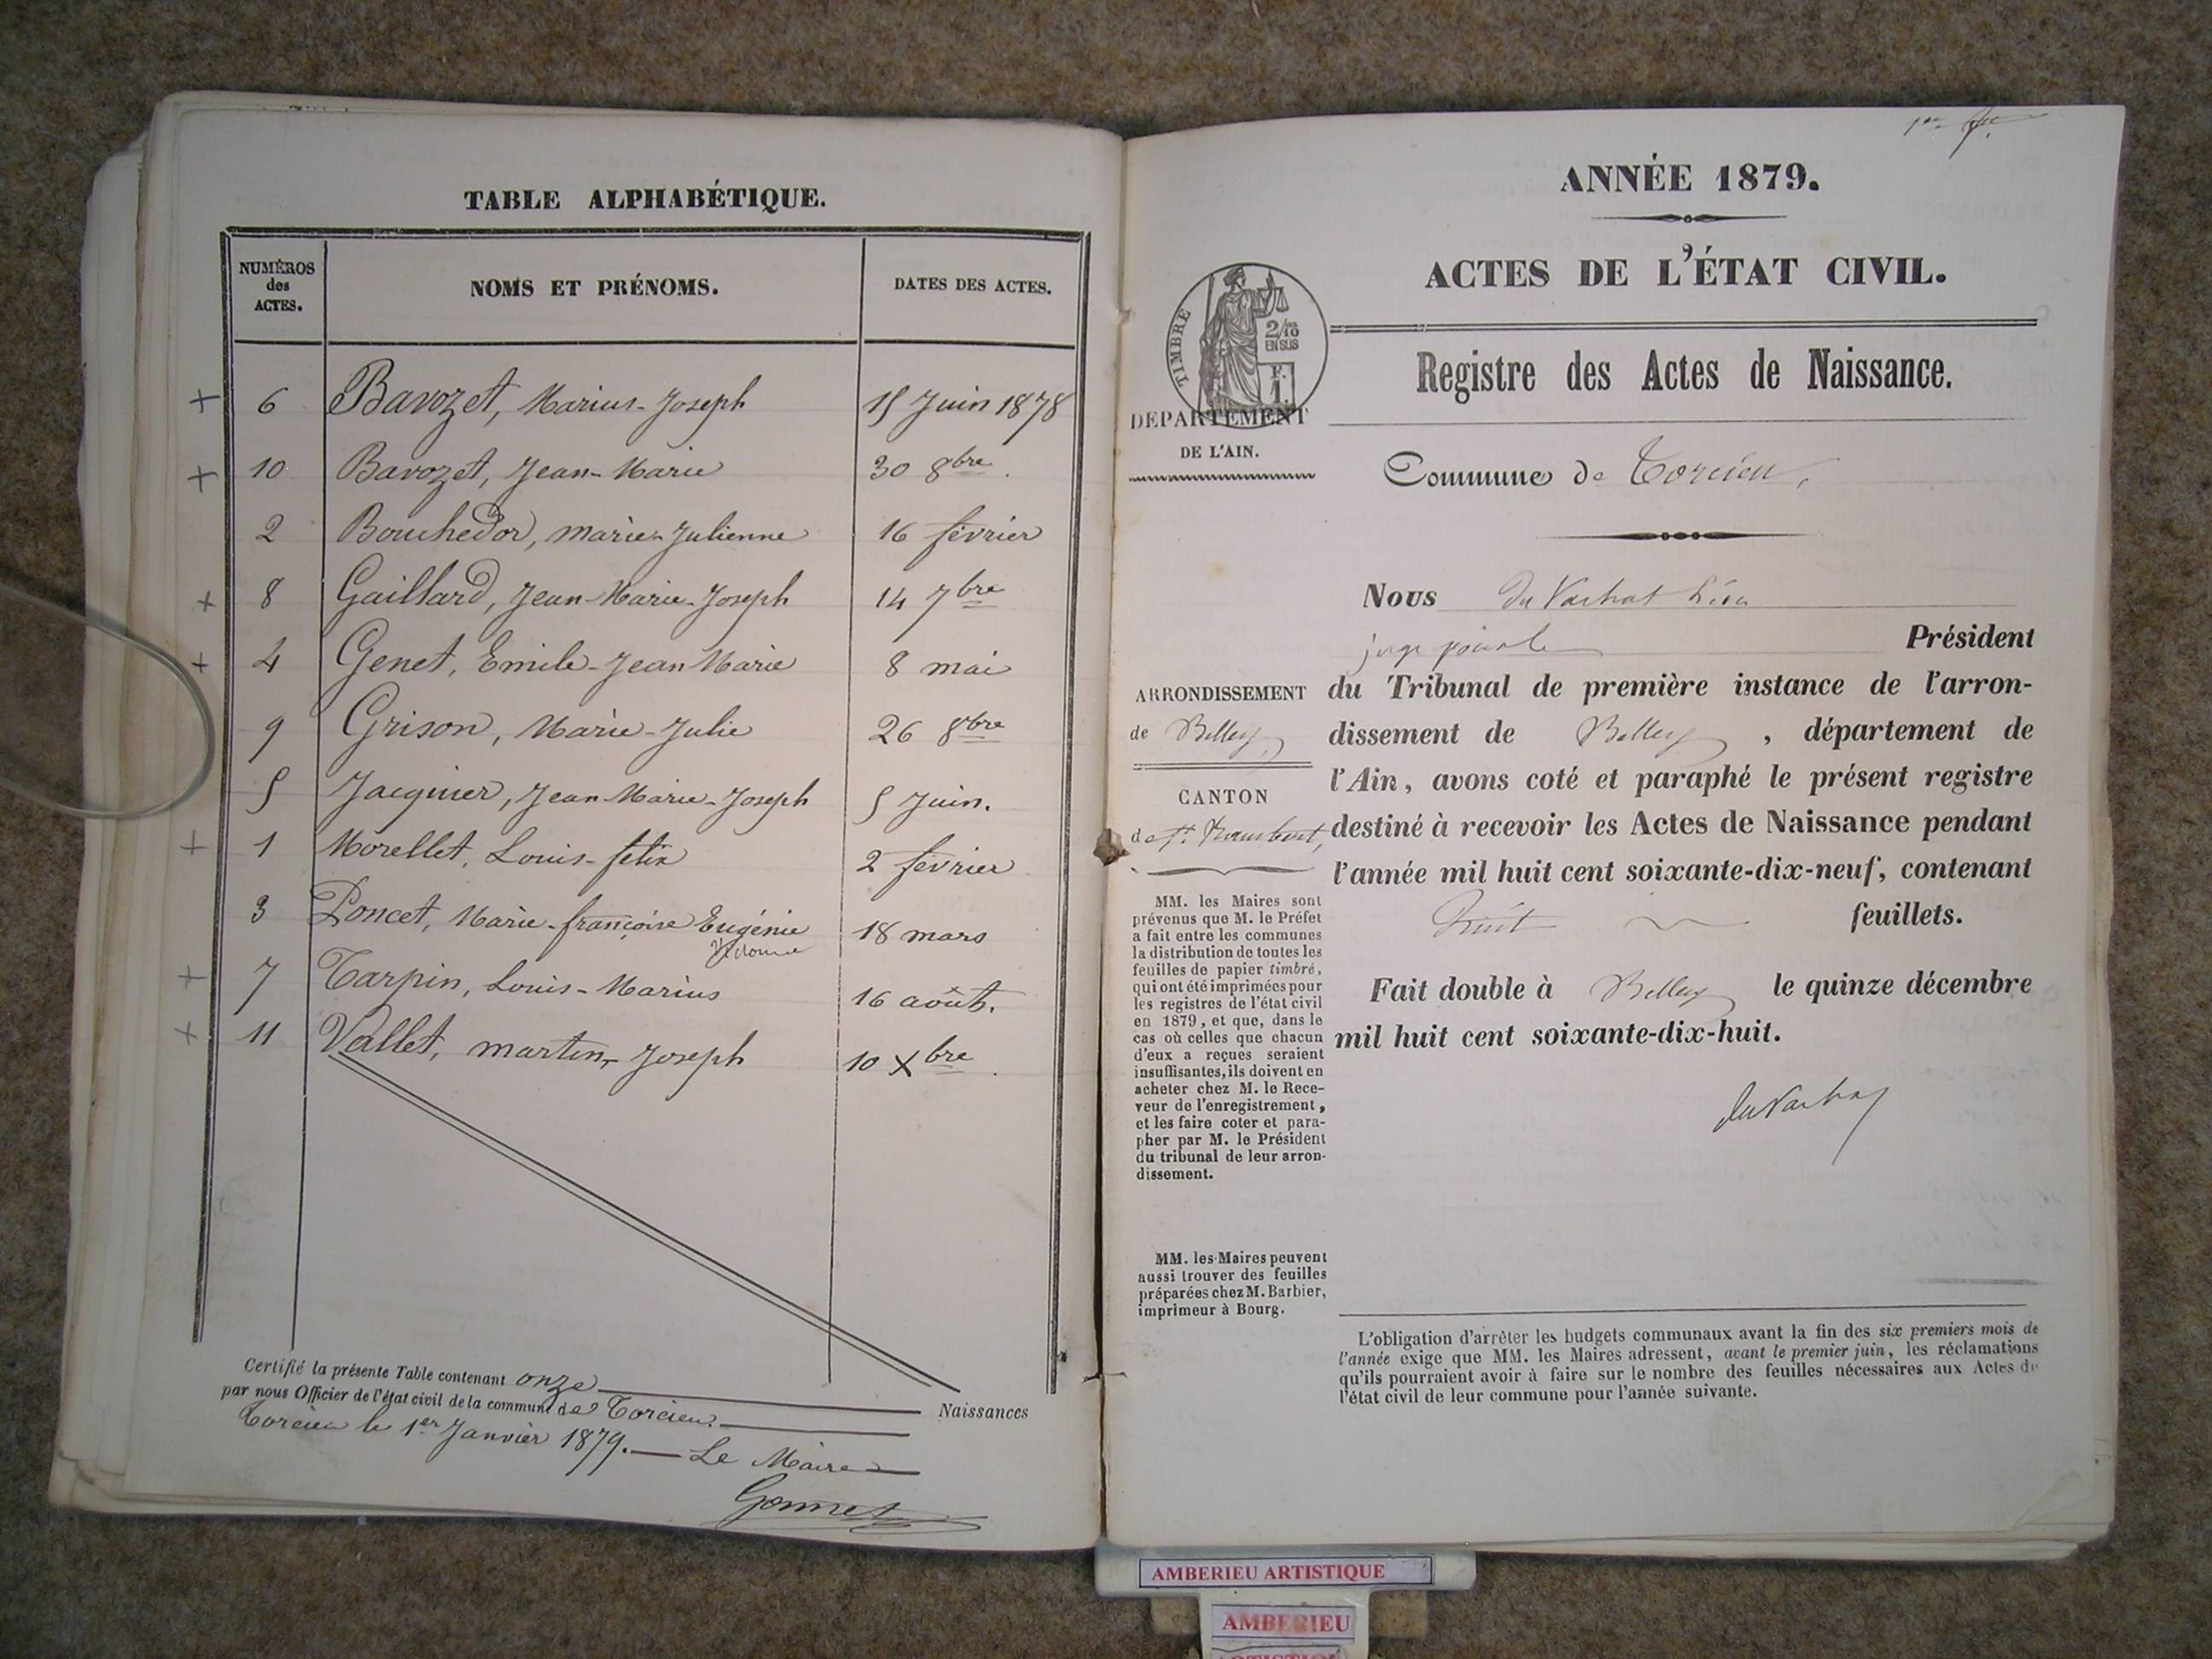 TABLE ALPHABÉTIQUE.
NUMÉROS des ACTES. NOMS ET PRÉNOMS. DATES DES ACTES.
+ 6 Bavozet, Marius-Joseph 15 Juin 1878
+ 10 Bavozet, Jean-Marie 30 8bre.
2 Bouchedor, Marie-Julienne 16 février
+ 8 Gaillard, Jean-Marie-Joseph 14 7bre
+ 4 Genet, Emile-Jean Marie 8 mai
9 Grison, Marie-Julie 26 8bre
5 Jacquier, Jean-Marie-Joseph 5 Juin.
+ 1 Morellet, Louis-félix 2 février
3 Poncet, Marie-françoise Eugénie 18 mars
+ 7 Tarpin, Louis-Marius 16 août.
+ 11 Vallet, martin-Joseph 10 Xbre.
Certifié la présente Table contenant onze
Naissances
par nous Officier de l'état civil de la commune de Torcieu.
Torcieu le 1er Janvier 1879. — Le Maire
Gonnet
1er
ANNÉE 1879.
ACTES DE L'ÉTAT CIVIL.
TIMBRE
2/10
EN SUS
F.
1.
Registre des Actes de Naissance.
DÉPARTEMENT
DE L'AIN.
Commune de Torcieu,
Nous du Vachat Léon
juge pour le Président
ARRONDISSEMENT
de Belley,
CANTON
de St. Rambert,
du Tribunal de première instance de l'arron-
dissement de Belley, département de
l'Ain, avons coté et paraphé le présent registre
destiné à recevoir les Actes de Naissance pendant
l'année mil huit cent soixante-dix-neuf, contenant
huit feuillets.
Fait double à Belley le quinze décembre
mil huit cent soixante-dix-huit.
du Vachat
MM. les Maires sont
prévenus que M. le Préfet
a fait entre les communes
la distribution de toutes les
feuilles de papier timbré,
qui ont été imprimées pour
les registres de l'état civil
en 1879, et que, dans le
cas où celles que chacun
d'eux a reçues seraient
insuffisantes, ils doivent en
acheter chez M. le Rece-
veur de l'enregistrement,
et les faire coter et para-
pher par M. le Président
du tribunal de leur arron-
dissement.
MM. les Maires peuvent
aussi trouver des feuilles
préparées chez M. Barbier,
imprimeur à Bourg.
L'obligation d'arrêter les budgets communaux avant la fin des six premiers mois de
l'année exige que MM. les Maires adressent, avant le premier juin, les réclamations
qu'ils pourraient avoir à faire sur le nombre des feuilles nécessaires aux Actes de
l'état civil de leur commune pour l'année suivante.
AMBERIEU ARTISTIQUE
AMBERIEU
ARTISTIQUE